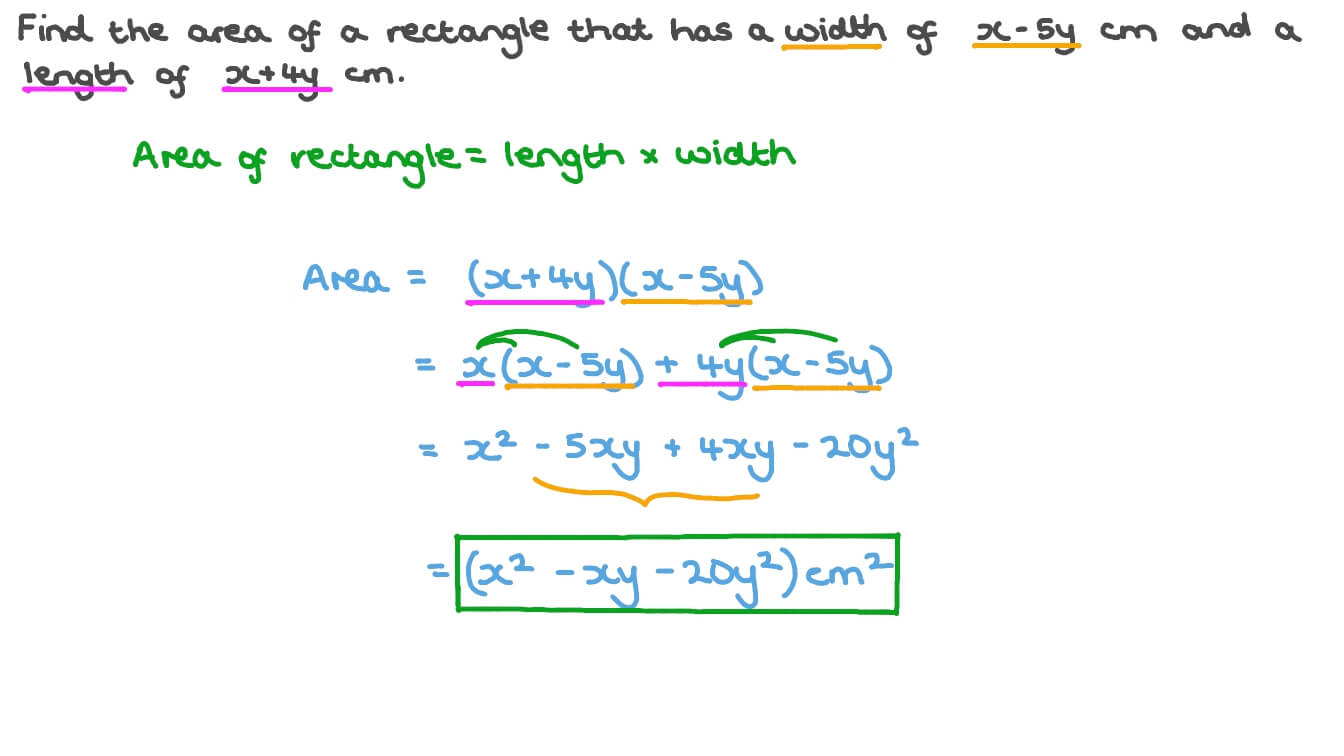 Find the area of a rectangle that has a width of x-5y cm and a
length of x+4y cm.
Area of rectangle = length × width
Area = (x+4y)(x-5y)
= x(x-5y) + 4y(x-5y)
= x² - 5xy + 4xy - 20y²
= (x² - xy - 20y²) cm²